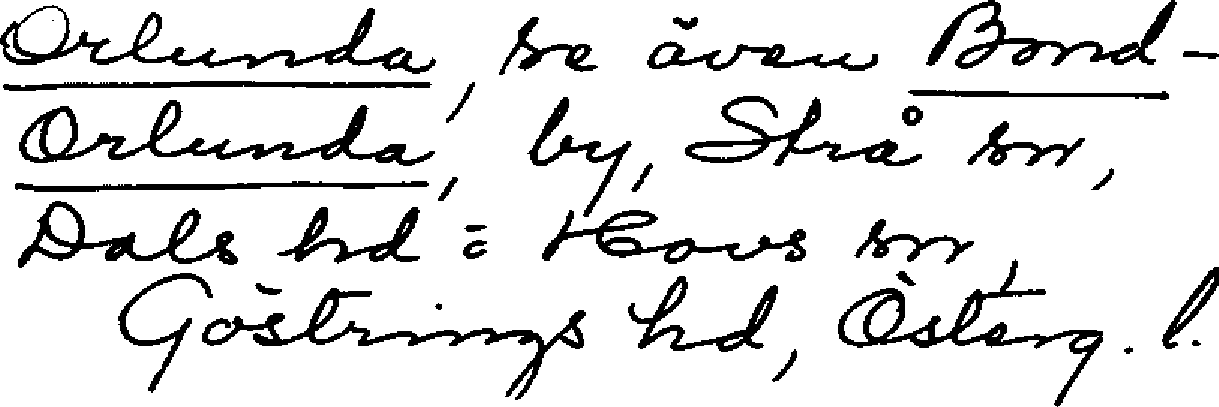 Orlunda, se även Bond-
Orlunda, by, Strå sn,
Dals hd = Hovs sn,
Göstrings hd, Österg. l.